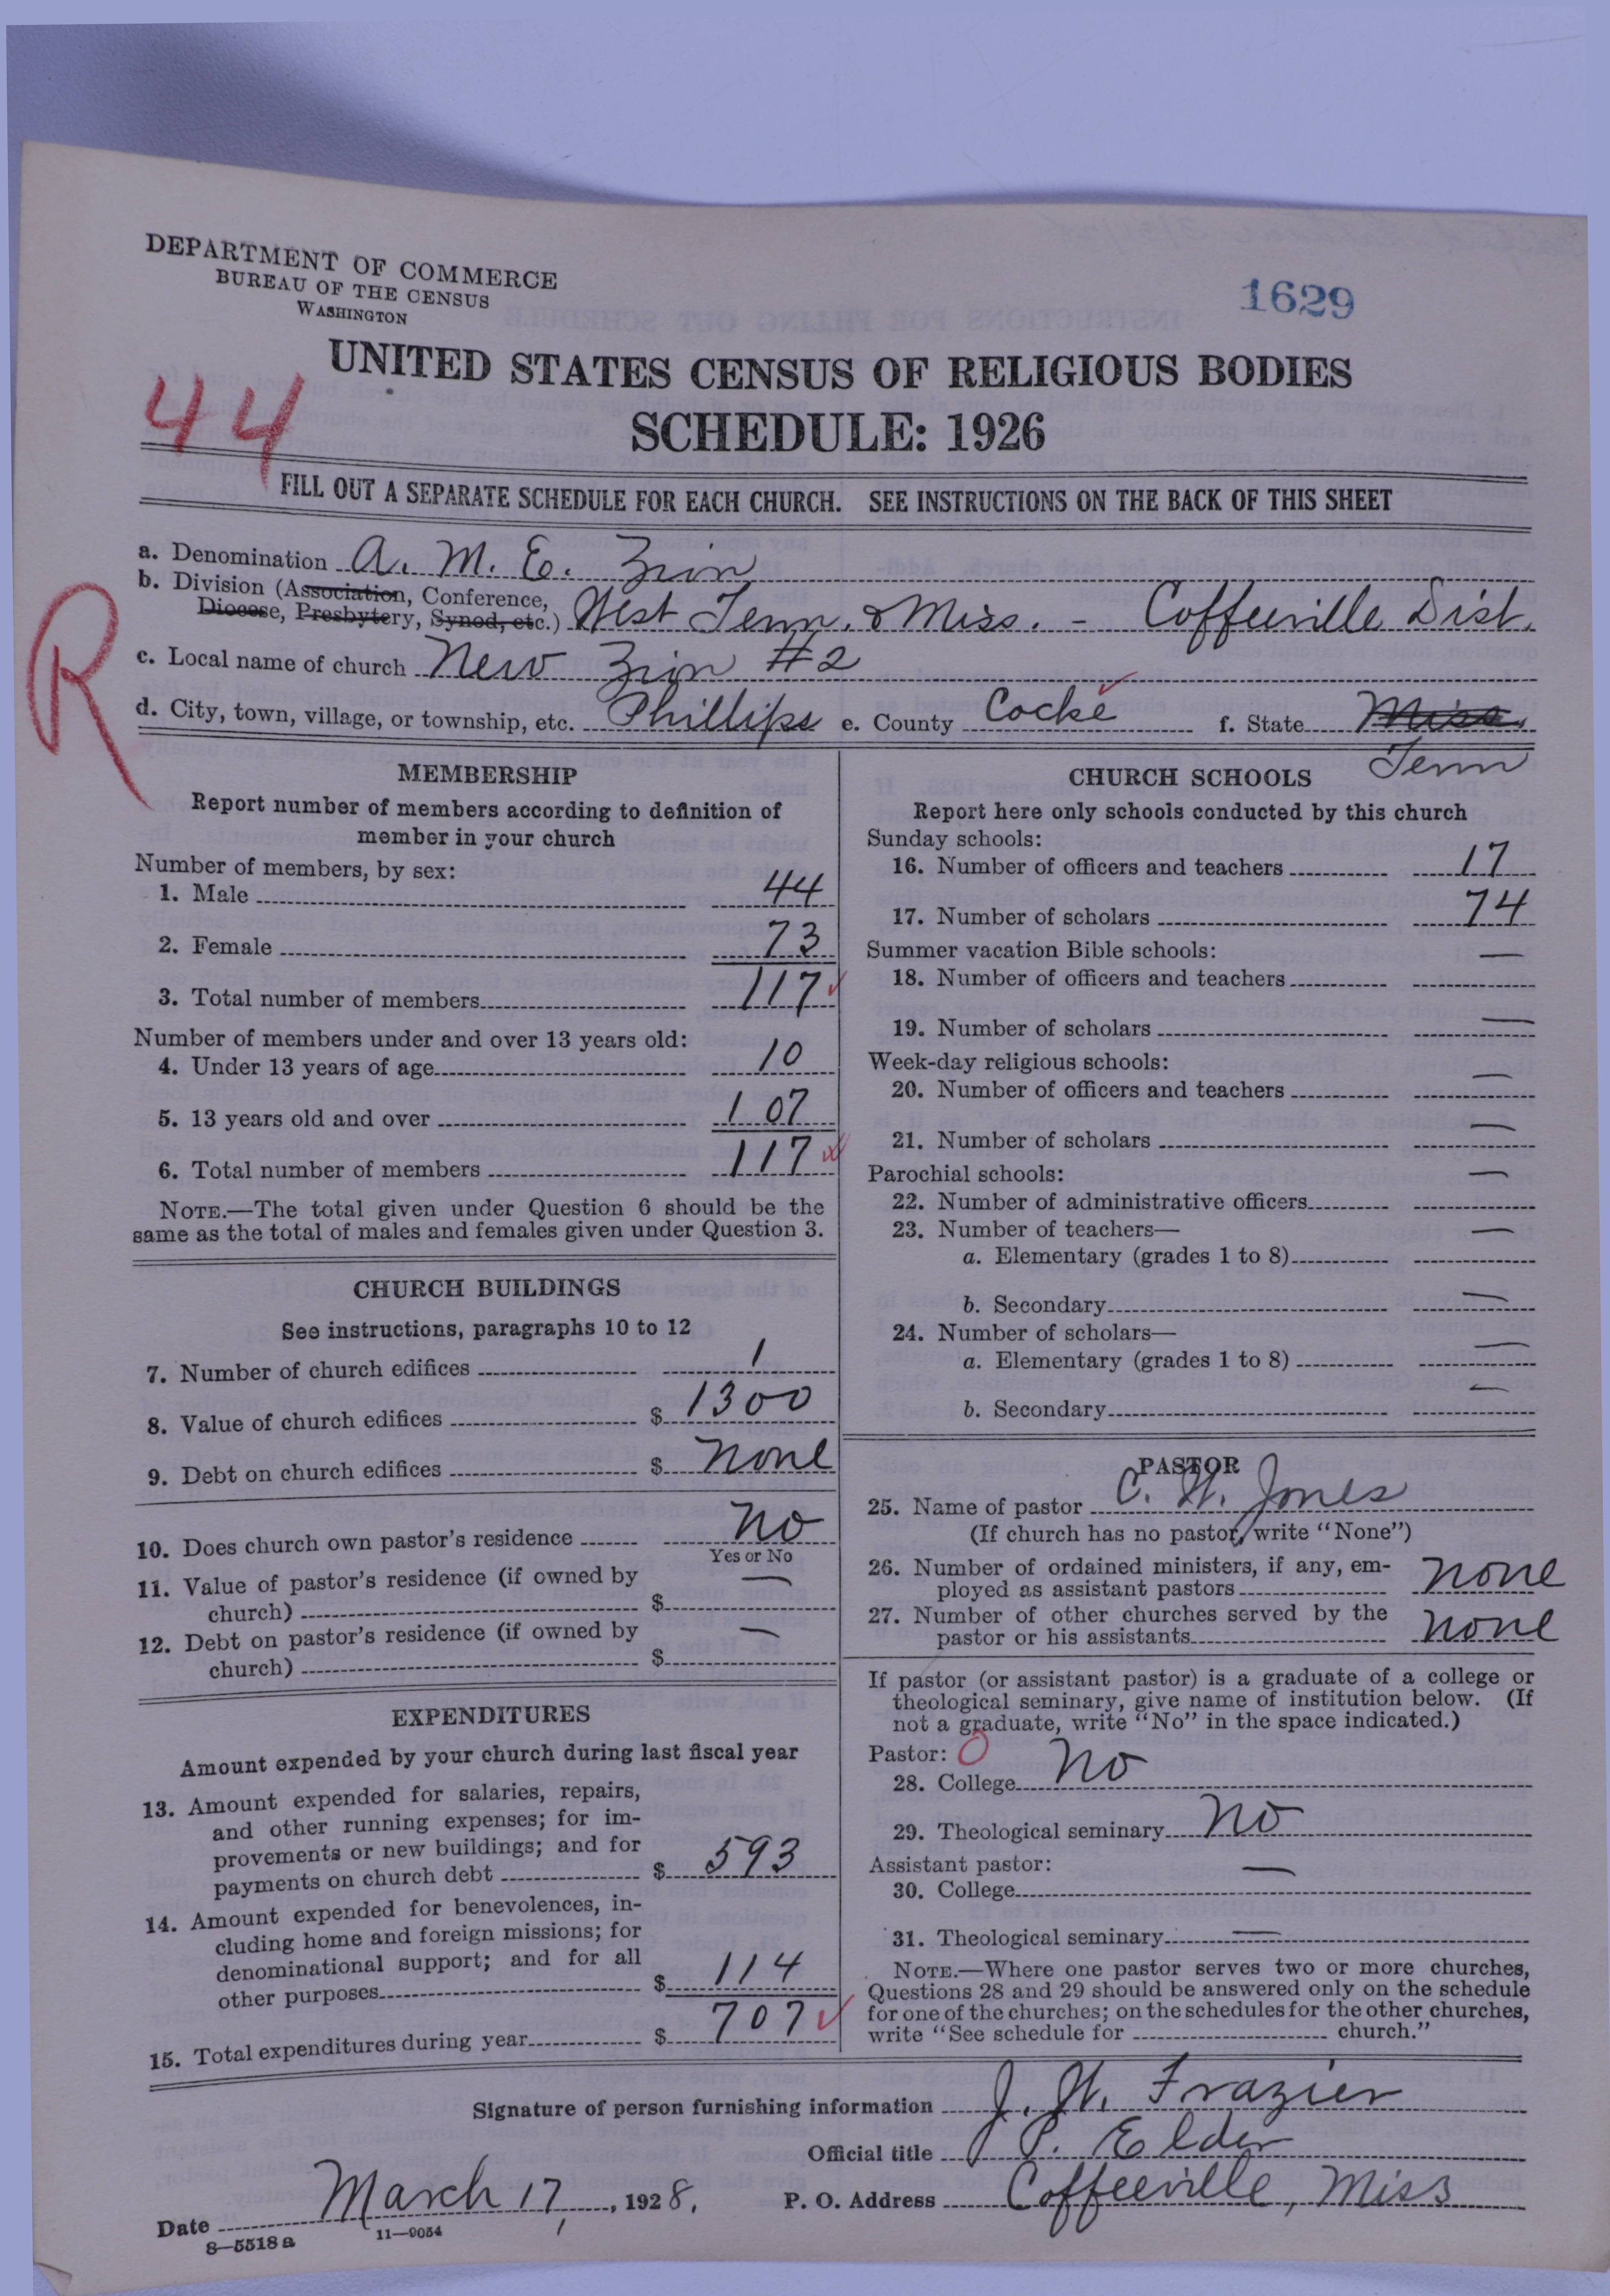 DEPARTMENT OF COMMERCE
BUREAU OF THE CENSUS
WASHINGTON
1629
UNITED STATES CENSUS OF RELIGIOUS BODIES
44
SCHEDULE: 1926
FILL OUT A SEPARATE SCHEDULE FOR EACH CHURCH. SEE INSTRUCTIONS ON THE BACK OF THIS SHEET
R
a. Denomination A. M. E. Zion
b. Division (Association, Conference,
Diocese, Presbytery, Synod, etc.) West Tenn. & Miss. - Coffeeville Dist.
c. Local name of church New Zion #2
d. City, town, village, or township, etc. Phillips e. County Cocke f. State Miss.
Tenn
MEMBERSHIP
Report number of members according to definition of
member in your church
Number of members, by sex:
1. Male 44
2. Female 73
3. Total number of members 117
Number of members under and over 13 years old:
4. Under 13 years of age 10
5. 13 years old and over 107
6. Total number of members 117
NOTE.—The total given under Question 6 should be the
same as the total of males and females given under Question 3.
CHURCH BUILDINGS
See instructions, paragraphs 10 to 12
7. Number of church edifices 1
8. Value of church edifices $ 1300
9. Debt on church edifices $ none
10. Does church own pastor's residence No
Yes or No
11. Value of pastor's residence (if owned by
church) $ —
12. Debt on pastor's residence (if owned by
church) $ —
EXPENDITURES
Amount expended by your church during last fiscal year
13. Amount expended for salaries, repairs,
and other running expenses; for im-
provements or new buildings; and for
payments on church debt $ 593
14. Amount expended for benevolences, in-
cluding home and foreign missions; for
denominational support; and for all
other purposes $ 114
15. Total expenditures during year $ 707
CHURCH SCHOOLS
Report here only schools conducted by this church
Sunday schools:
16. Number of officers and teachers 17
17. Number of scholars 74
Summer vacation Bible schools:
18. Number of officers and teachers —
19. Number of scholars —
Week-day religious schools:
20. Number of officers and teachers —
21. Number of scholars —
Parochial schools:
22. Number of administrative officers —
23. Number of teachers—
a. Elementary (grades 1 to 8) —
b. Secondary —
24. Number of scholars—
a. Elementary (grades 1 to 8) —
b. Secondary —
PASTOR
25. Name of pastor C. W. Jones
(If church has no pastor, write "None")
26. Number of ordained ministers, if any, em-
ployed as assistant pastors none
27. Number of other churches served by the
pastor or his assistants none
If pastor (or assistant pastor) is a graduate of a college or
theological seminary, give name of institution below. (If
not a graduate, write "No" in the space indicated.)
Pastor: O
28. College No
29. Theological seminary No
Assistant pastor:
30. College —
31. Theological seminary —
NOTE.—Where one pastor serves two or more churches,
Questions 28 and 29 should be answered only on the schedule
for one of the churches; on the schedules for the other churches,
write "See schedule for church."
Signature of person furnishing information J. W. Frazier
Official title P. Elder
Date March 17, 1928. P. O. Address Coffeeville, Miss
8—5518 a 11—9054